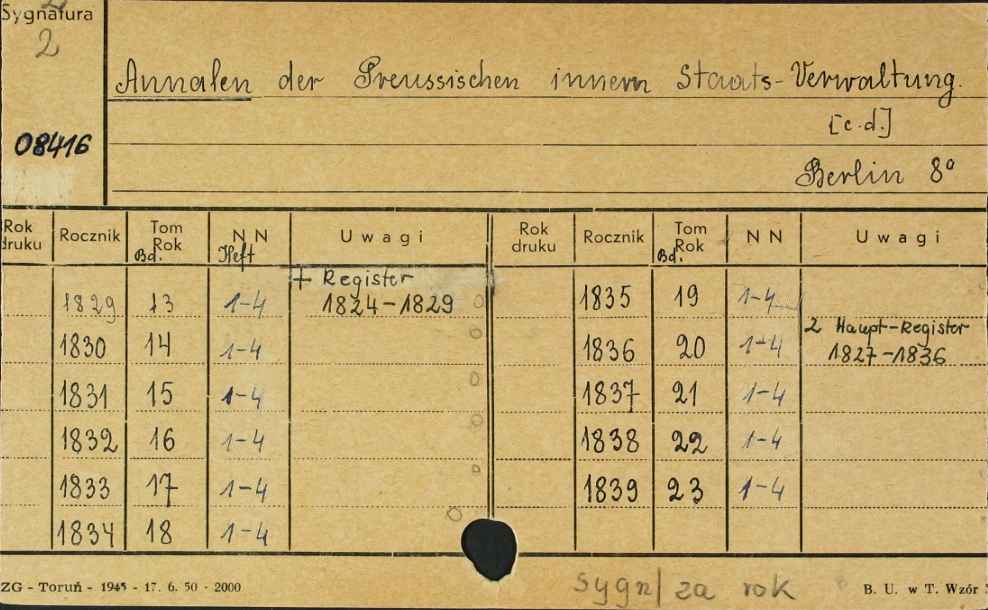 Sygnatura
2
08416
Annalen der Preussischen innern Staats-Verwaltung.
[c.d.]
Berlin 8°
Rok druku Rocznik Tom Rok Bd. NN Heft Uwagi Rok druku Rocznik Tom Rok Bd. NN Uwagi
1829 13 1-4 + Register 1824-1829 1835 19 1-4
1830 14 1-4 1836 20 1-4 2 Haupt-Register 1827-1836
1831 15 1-4 1837 21 1-4
1832 16 1-4 1838 22 1-4
1833 17 1-4 1839 23 1-4
1834 18 1-4
sygn/ za rok
ZG - Toruń - 1945 - 17. 6. 50 - 2000 B. U. w T. Wzór